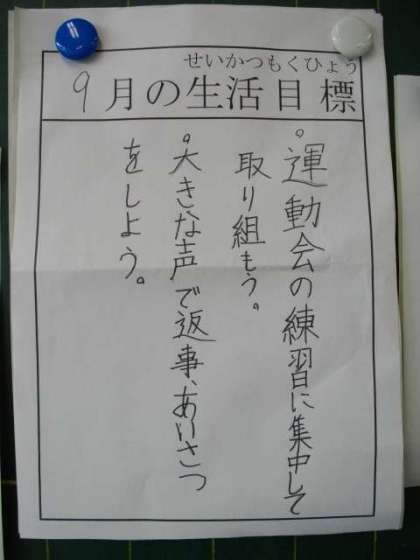 せいかつもくひょう
9月の生活目標
。運動会の練習に集中して
取り組もう。
。大きな声で返事、あいさつ
をしよう。